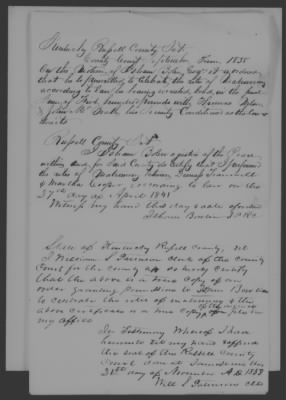 Kentucky Russell County Sct
County Court September Term 1838
On the Motion of Isham Esqr it is ordered
that he be permitted to Celebrate the rites of Matrimony
according to Law he having executed bond in the
Sum of with Thomas
& John as the law
directs
Russell County Sct
I Isham a Justice of the Peace
within and for said County do Certify that I performed
the rites of Matrimony between
& Martha Cooper according to law on the
27th day of April 1841
Witness my hand this day & date aforesaid
Isham
State of Kentucky Russell County, sct
I William S Patterson Clerk of the County
Court for the County do hereby Certify
that the above is a true Copy of an
order granting permission to
to celebrate the rites of matrimony & the
above Certificate is a true Copy of the on file in
my office
In Testimony Whereof I have
hereunto set my hand & affixed
the seal of the Russell County
Court done at Jamestown this
day of November A.D. 1853
Will S Patterson Clk